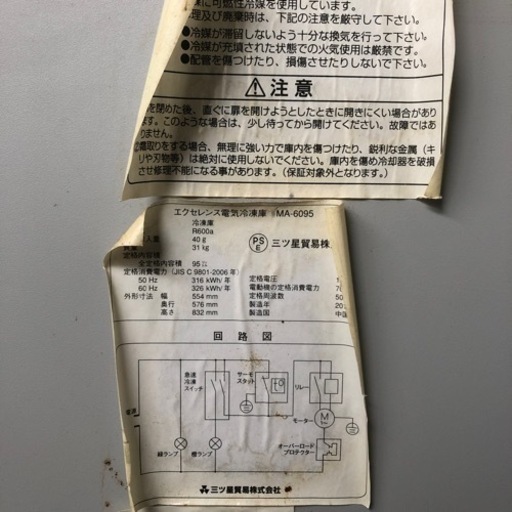 に可燃性冷媒を使用しています。
理及び廃棄時は、下記の注意を厳守して下さい。
●冷媒が滞留しないよう十分な換気を行って下さい。
●冷媒が充填された状態での火気使用は厳禁です。
●配管を傷つけたり、損傷させたりしないで下さい。
⚠注意
を閉めた後、直ぐに扉を開けようとしたときに開きにくい場合があり
す。このような場合は、少し待ってから開けてください。故障ではあ
りません。
霜取りをする場合、無理に強い力で庫内を傷つけたり、鋭利な金属（キ
リや刃物等）は絶対に使用しないでください。庫内を傷め冷却器を破損
させ修理不能になる事があります。（保証対象外となります。）
エクセレンス電気冷凍庫 MA-6095
冷凍庫
R600a
入量 40 g
31 kg
PSE 三ツ星貿易株
定格内容積
全定格内容積 95
定格消費電力（JIS C 9801-2006 年）
50 Hz 316 kWh/年
60 Hz 326 kWh/年
外形寸法 幅 554 mm
奥行 576 mm
高さ 832 mm
定格電圧 1
電動機の定格消費電力 7
定格周波数 50
製造年 20
製造国 中国
回路図
急速冷凍スイッチ
サーモスタット
リレー
M
モーター
オーバーロードプロテクター
緑ランプ
橙ランプ
三ツ星貿易株式会社